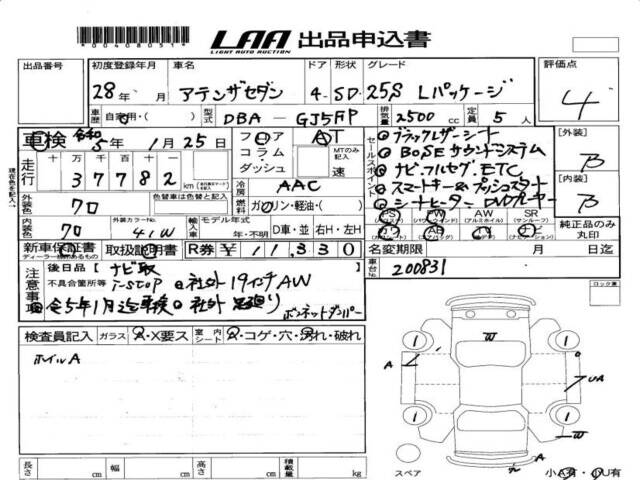 *00408051*
LAA 出品申込書
LIGHT AUTO AUCTION
出品番号 初度登録年月 車名 ドア 形状 グレード 評価点
28年 月 アテンザセダン 4- SD 25S Lパッケージ 4
車歴 自家用・( ) 型式 DBA - GJ5FP 排気量 2500 cc 定員 5 人
車検 令和 5年 1月25日 フロア コラム・ダッシュ AT MTのみ記入 速
セールスポイント
ブラックレザーシート
BOSEサウンドシステム
ナビ・フルセグ・ETC
スマートキー&プッシュスタート
シートヒーター DVDプレーヤー
[外装] B
[内装] B
走行 十万 万 千 百 十 一
37782 km
冷房 AAC
外装色 クロ 色替車は色替と記入 燃料 ガソリン・軽油・( )
内装色 クロ 外装カラーNo. 41W 輸入車 モデル年式 年・不明 D車・並 右H・左H
PS PW AW SR (サンルーフ)
純正品のみ丸印
新車保証書 取扱説明書 R券 ¥11,330
ディーラー機のあるもの
名変期限 月 日迄
車台No. 200831
注意事項 後日品 ナビ取
不具合箇所等 i-stop 社外19インチAW
令5年1月迄車検 社外 足廻り ボンネットダンパー
ロック裏
検査員記入 ガラス A・X要ス 室内シート A・コゲ・穴・汚れ・破れ
ホイルA
1 1 W A UA 1 1 W A
長さ cm 幅 cm 高さ cm 積載量 kg
スペア 小A有・小U有